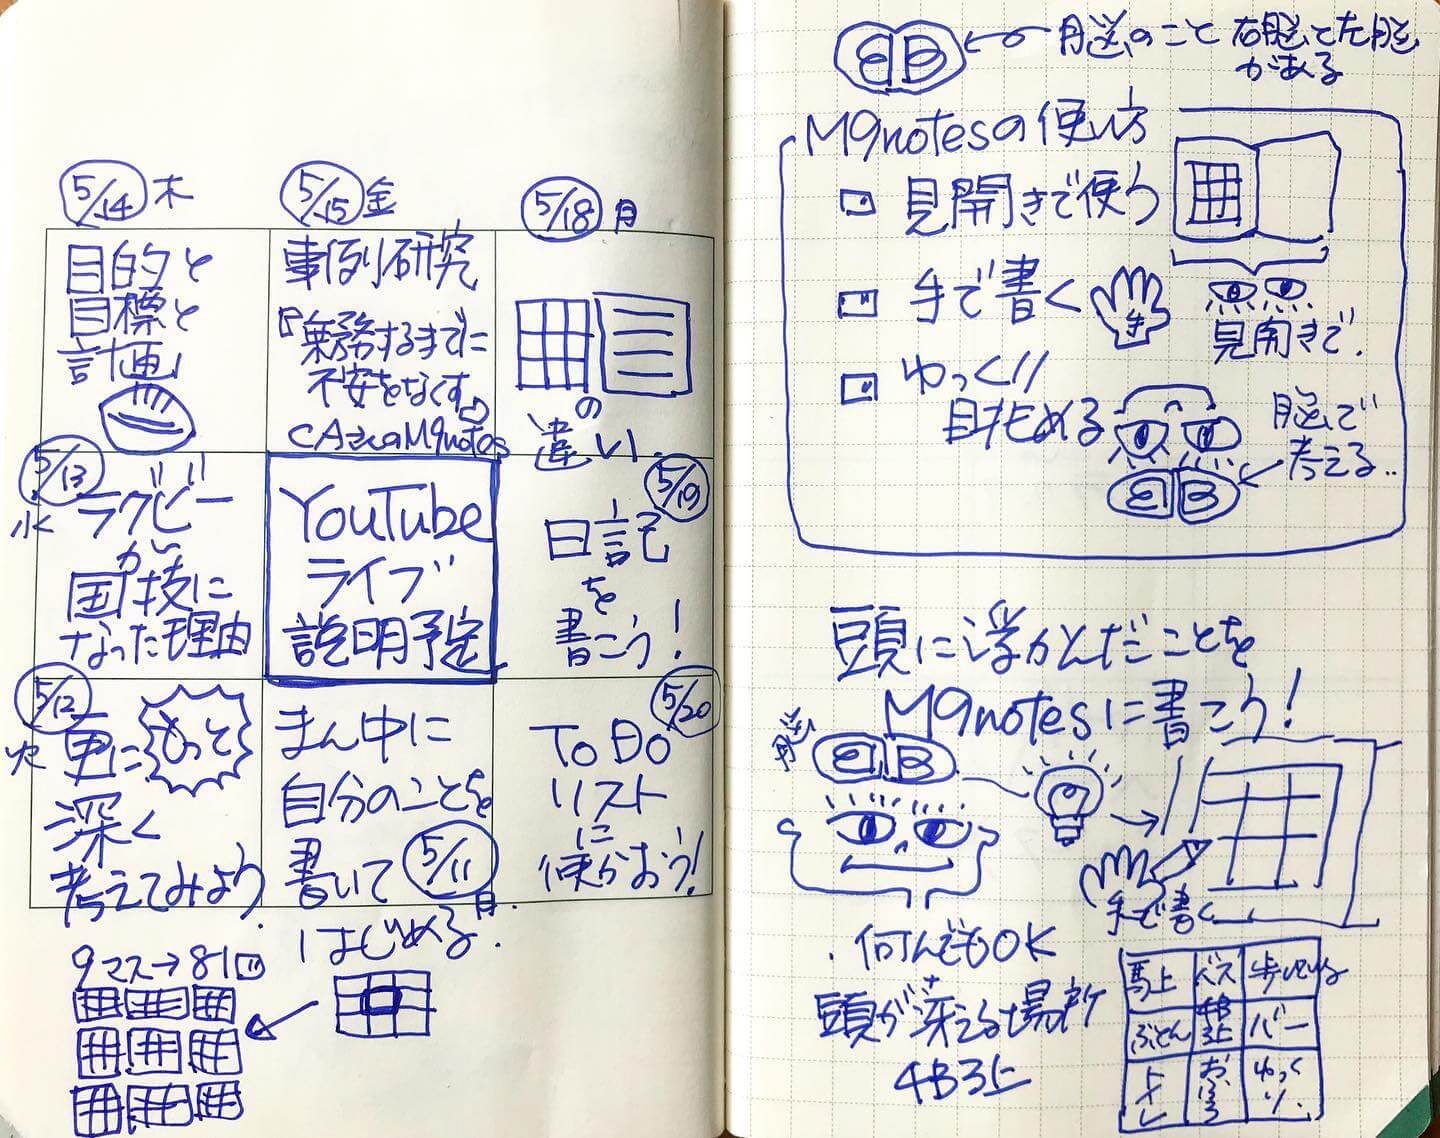 5/14 木
目的と
目標と
計画
5/15 金
事例研究
乗務するまでに
不安をなくす
CAさんのM9notes
5/18 月
の
違い
5/13
水
ラグビー
が
国技に
なった理由
YouTube
ライブ
説明予定
5/19
日記
を
書こう!
5/12
火
更に
もっと
深く
考えてみよう
まん中に
自分のことを
書いて
5/11
月
はじめる.
5/20
ToDo
リスト
に
使おう!
9マス→81
脳のこと 右脳と左脳
がある
M9notesの使い方
見開きで使う
手で書く
手
見開きで.
ゆっくり
眺める
脳で
考える..
頭に浮かんだことを
M9notesに書こう!
脳
手で書く
・何んでもOK
頭が冴える場所
4B3上
馬上
バス
歩いている
ふとん
4B
3上
バー
トイレ
おふろ
ゆっくり